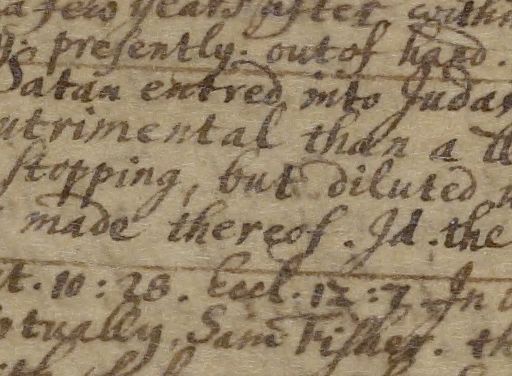 a few years after with
presently. out of hand.
Satan entred into Judas
utrimental than a
stopping, but diluted
made thereof. Id. the
t. 10:28. Eccl. 12:7. In
tually. Sam Fisher. th